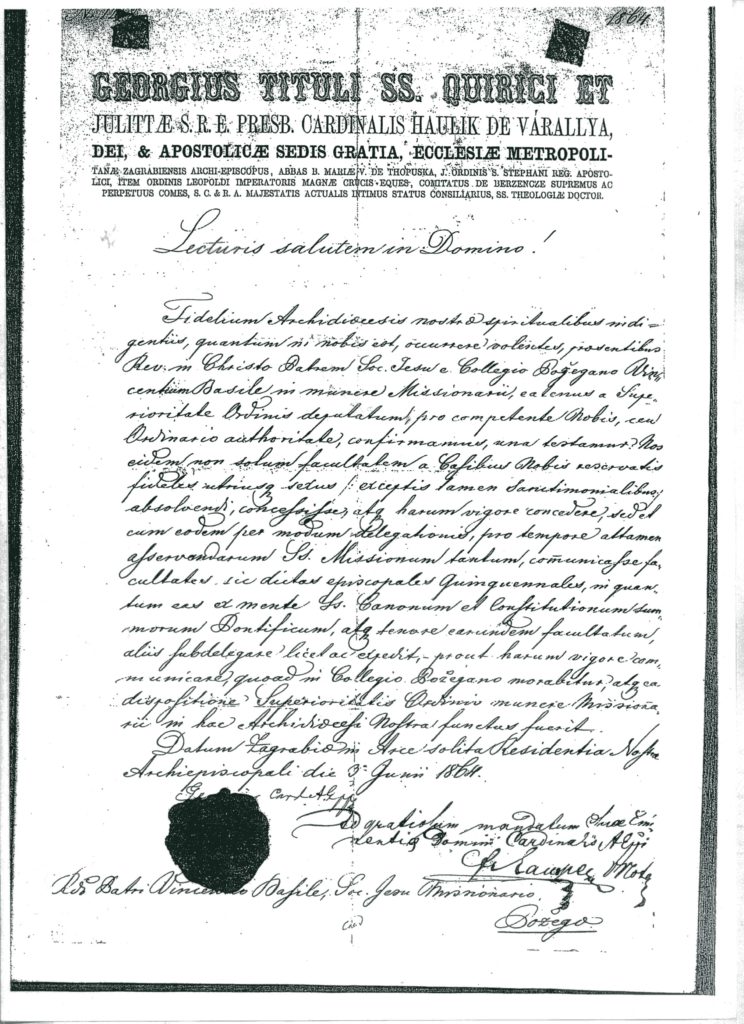 1864
GEORGIUS TITULI SS. QUIRICI ET
JULITTÆ S. R. E. PRESB. CARDINALIS HAULIK DE VÁRALLYA,
DEI, & APOSTOLICÆ SEDIS GRATIA, ECCLESIÆ METROPOLI-
TANÆ ZAGRABIENSIS ARCHI-EPISCOPUS, ABBAS B. MARIÆ V. DE THOPUSKA, J. ORDINIS S. STEPHANI REG. APOSTO-
LICI, ITEM ORDINIS LEOPOLDI IMPERATORIS MAGNÆ CRUCIS EQUES, COMITATUS DE BERZENCZE SUPREMUS AC
PERPETUUS COMES, S. C. & R. A. MAJESTATIS ACTUALIS INTIMUS STATUS CONSILIARIUS, SS. THEOLOGIÆ DOCTOR.
Lecturis salutem in Domino!
Fidelium Archidioecesis nostræ spiritualibus indi=
gentiis, quantum in nobis est, occurrere volentes, præsentibus
Rev. in Christo Patrem Soc. Jesu e Collegio Požegano Vin=
centium Basile in munere Missionarii, eatenus a Supe=
rioritate Ordinis deputatum, pro competente Nobis, ceu
Ordinario authoritate, confirmamus, una testamur: Nos
eidem non solum facultatem a Casibus Nobis reservatis
fideles utriusq sexus /: exceptis tamen Sanctimonialibus:/
absolvendi, concessisse, atq harum vigore concedere, sed et
cum eodem per modum delegationis, pro tempore attamen
asservandarum Ss. Missionum tantum, com̄unicasse fa=
cultates sic dictas episcopales Quinquennales, in quan=
tum eas ex mente Ss. Canonum et Constitutionum Sum=
morum Pontificum, atq tenore earundem facultatum,
aliis subdelegare licet ac expedit, – prout harum vigore com=
municare, quoad in Collegio Požegano morabitur, atq ea
dispositione Superioritatis Ordinis munere Missiona=
rii in hac Archidioecesi Nostra functus fuerit.
Datum Zagrabiæ in Arce solita Residentia Nostra
Archiepiscopali die 3ª Junii 1864.
Card. AEpp
Ad gratiosum mandatum Suæ Emi=
nentiæ Domini Cardinalis AEppi
Rdo Patri Vincentio Basile, Soc. Jesu Missionario
Požega